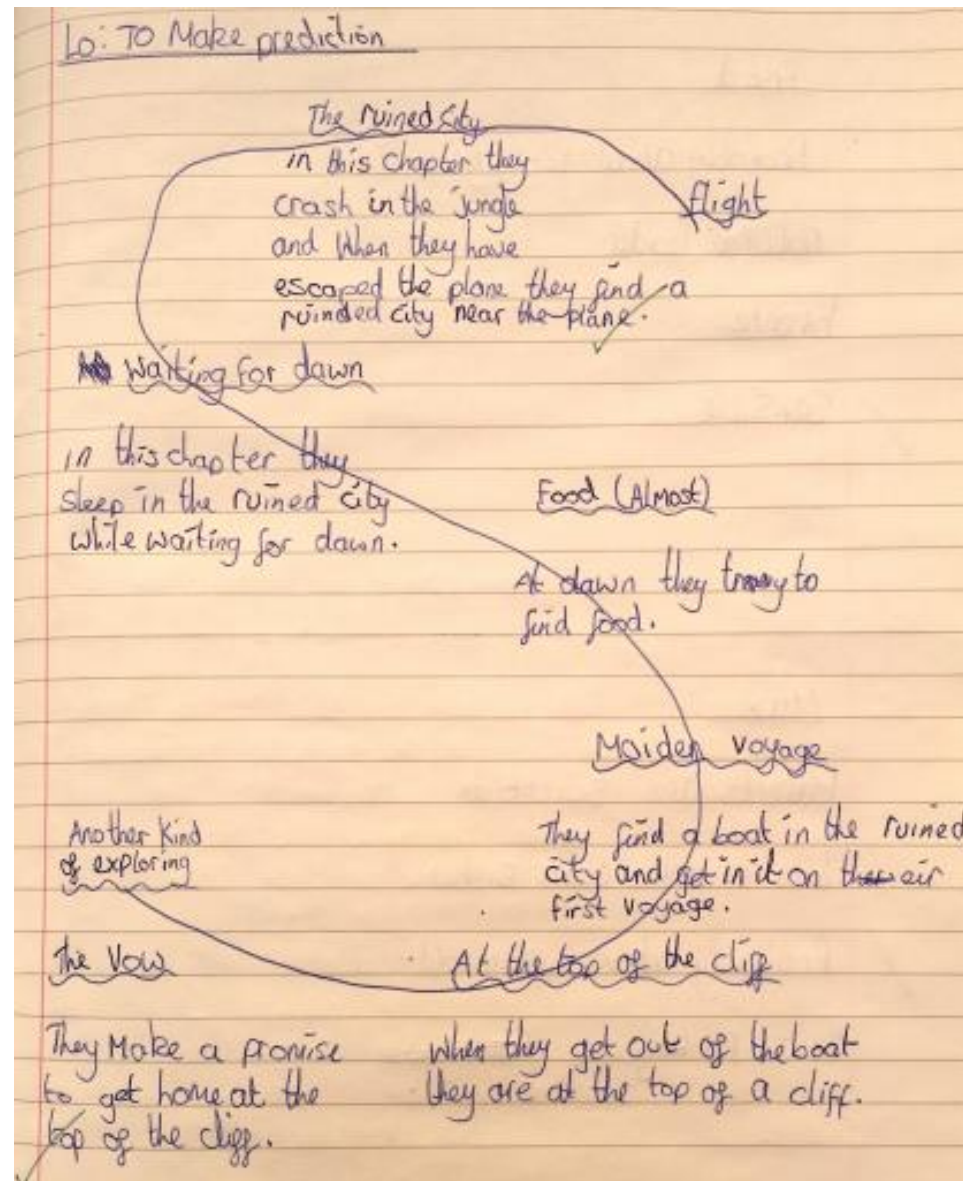 Lo: TO Make prediction
The ruined city
in this chapter they
crash in the jungle
and when they have
escaped the plane they find a
ruinded city near the plane.
flight
Waiting for dawn
in this chapter they
sleep in the ruined city
while waiting for dawn.
Food (Almost)
At dawn they try to
find food.
Maiden voyage
They find a boat in the ruined
city and get in it on their
first voyage.
Another Kind
of exploring
The Vow
They Make a promise
to get home at the
top of the cliff.
At the top of the cliff
when they get out of the boat
they are at the top of a cliff.